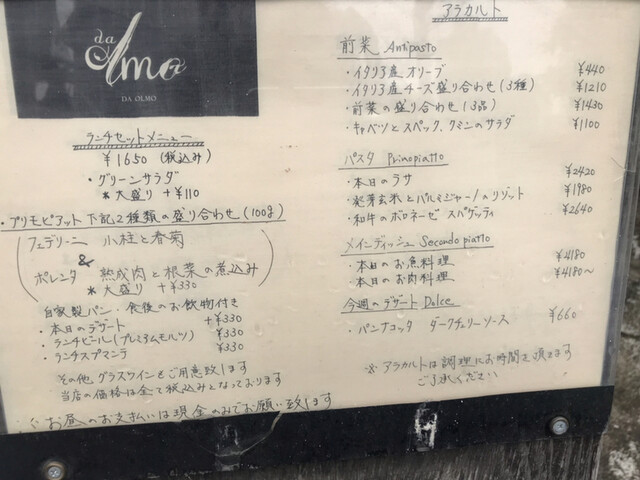 da Olmo
DA OLMO
ランチセットメニュー
¥1650 (税込み)
・グリーンサラダ
*大盛り +¥110
・プリモピアット 下記2種類の盛り合わせ(100g)
フェデリーニ 小柱と春菊
&
ポレンタ 熟成肉と根菜の煮込み
*大盛り +¥330
自家製パン・食後のお飲物付き
・本日のデザート +¥330
・ランチビール(プレミアムモルツ) ¥330
・ランチスプマンテ ¥330
その他、グラスワインをご用意致します
当店の価格は全て税込みとなっております
お昼のお支払いは現金のみでお願い致します
アラカルト
前菜 Antipasto
・イタリア産 オリーブ ¥440
・イタリア産チーズ盛り合わせ(3種) ¥1210
・前菜の盛り合わせ(3品) ¥1430
・キャベツとスペック、クミンのサラダ ¥1100
パスタ Primopiatto
・本日のラザ ¥2420
・胚芽玄米とパルミジャーノのリゾット ¥1980
・和牛のボロネーゼ スパゲッティ ¥2640
メインディッシュ Secondo piatto
・本日のお魚料理 ¥4180
・本日のお肉料理 ¥4180~
今週のデザート Dolce
・パンナコッタ ダークチェリーソース ¥660
※アラカルトは調理にお時間を頂きます
ご了承ください